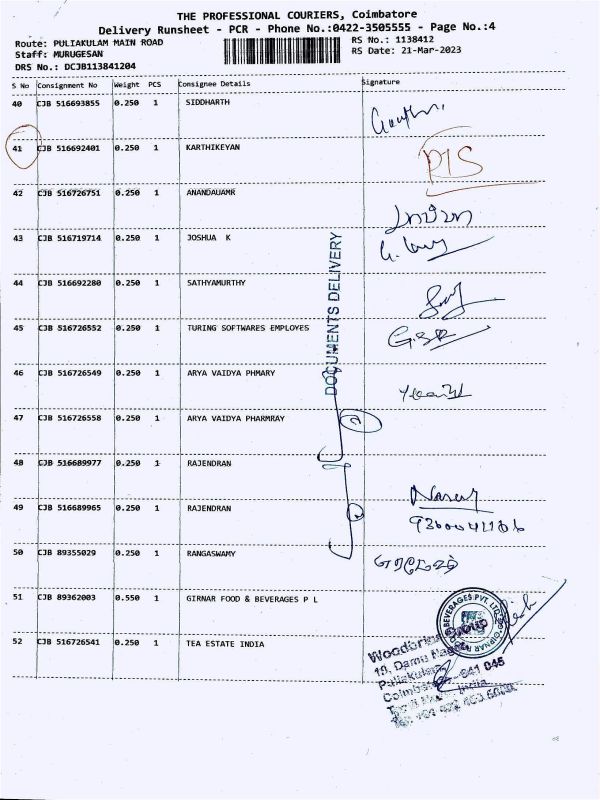 THE PROFESSIONAL COURIERS, Coimbatore
Delivery Runsheet - PCR - Phone No.:0422-3505555 - Page No.:4
Route: PULIAKULAM MAIN ROAD
Staff: MURUGESAN
DRS No.: DCJB113841204
RS No.: 1138412
RS Date: 21-Mar-2023
S No Consignment No Weight PCS Consignee Details Signature
40 CJB 516693855 0.250 1 SIDDHARTH
41 CJB 516692401 0.250 1 KARTHIKEYAN
42 CJB 516726751 0.250 1 ANANDAUAMR
43 CJB 516719714 0.250 1 JOSHUA K
44 CJB 516692280 0.250 1 SATHYAMURTHY
45 CJB 516726552 0.250 1 TURING SOFTWARES EMPLOYES
46 CJB 516726549 0.250 1 ARYA VAIDYA PHMARY
47 CJB 516726558 0.250 1 ARYA VAIDYA PHARMRAY
48 CJB 516689977 0.250 1 RAJENDRAN
49 CJB 516689965 0.250 1 RAJENDRAN
50 CJB 89355029 0.250 1 RANGASWAMY
51 CJB 89362003 0.550 1 GIRNAR FOOD & BEVERAGES P L
52 CJB 516726541 0.250 1 TEA ESTATE INDIA
DOCUMENTS DELIVERY
BEVERAGES PVT. LTD. GIRNAR
Woodbriar Group
Puliakulam
641 045
India